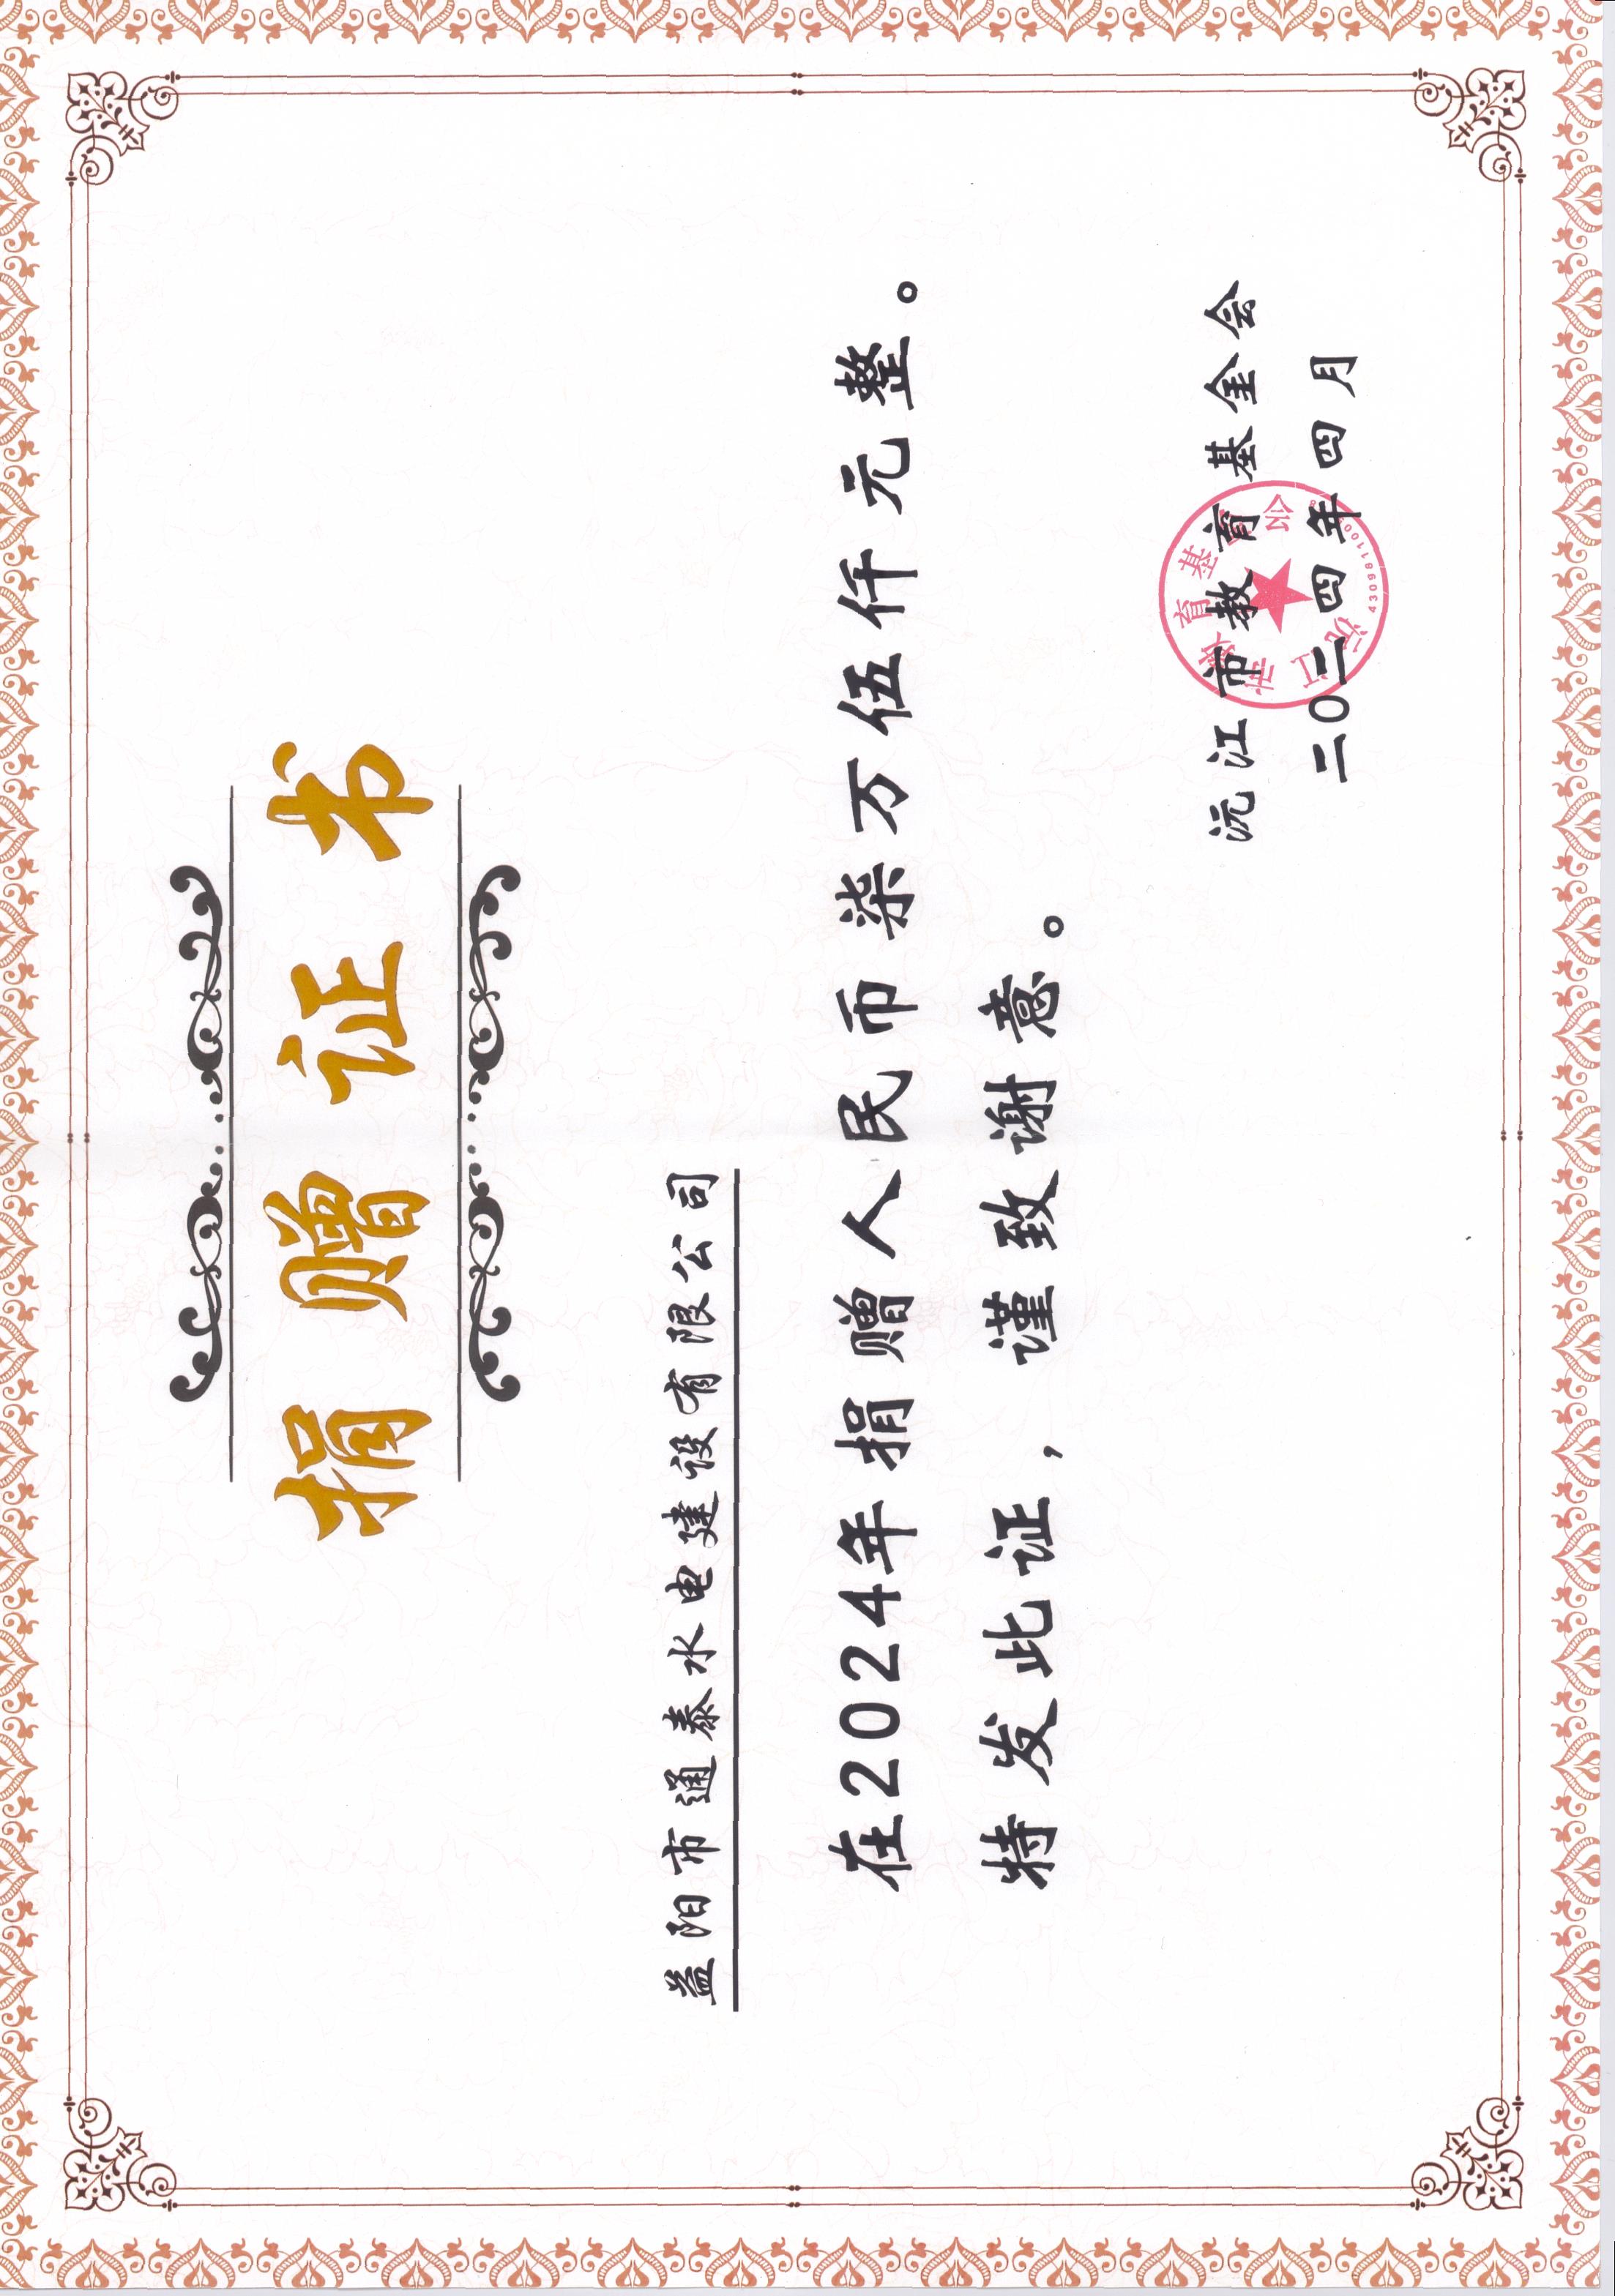 捐赠证书
益阳市通泰水电建设有限公司
在2024年捐赠人民币柒万伍仟元整。
特发此证，谨致谢意。
沅江市教育基金会
二〇二四年四月
沅江市教育基金会